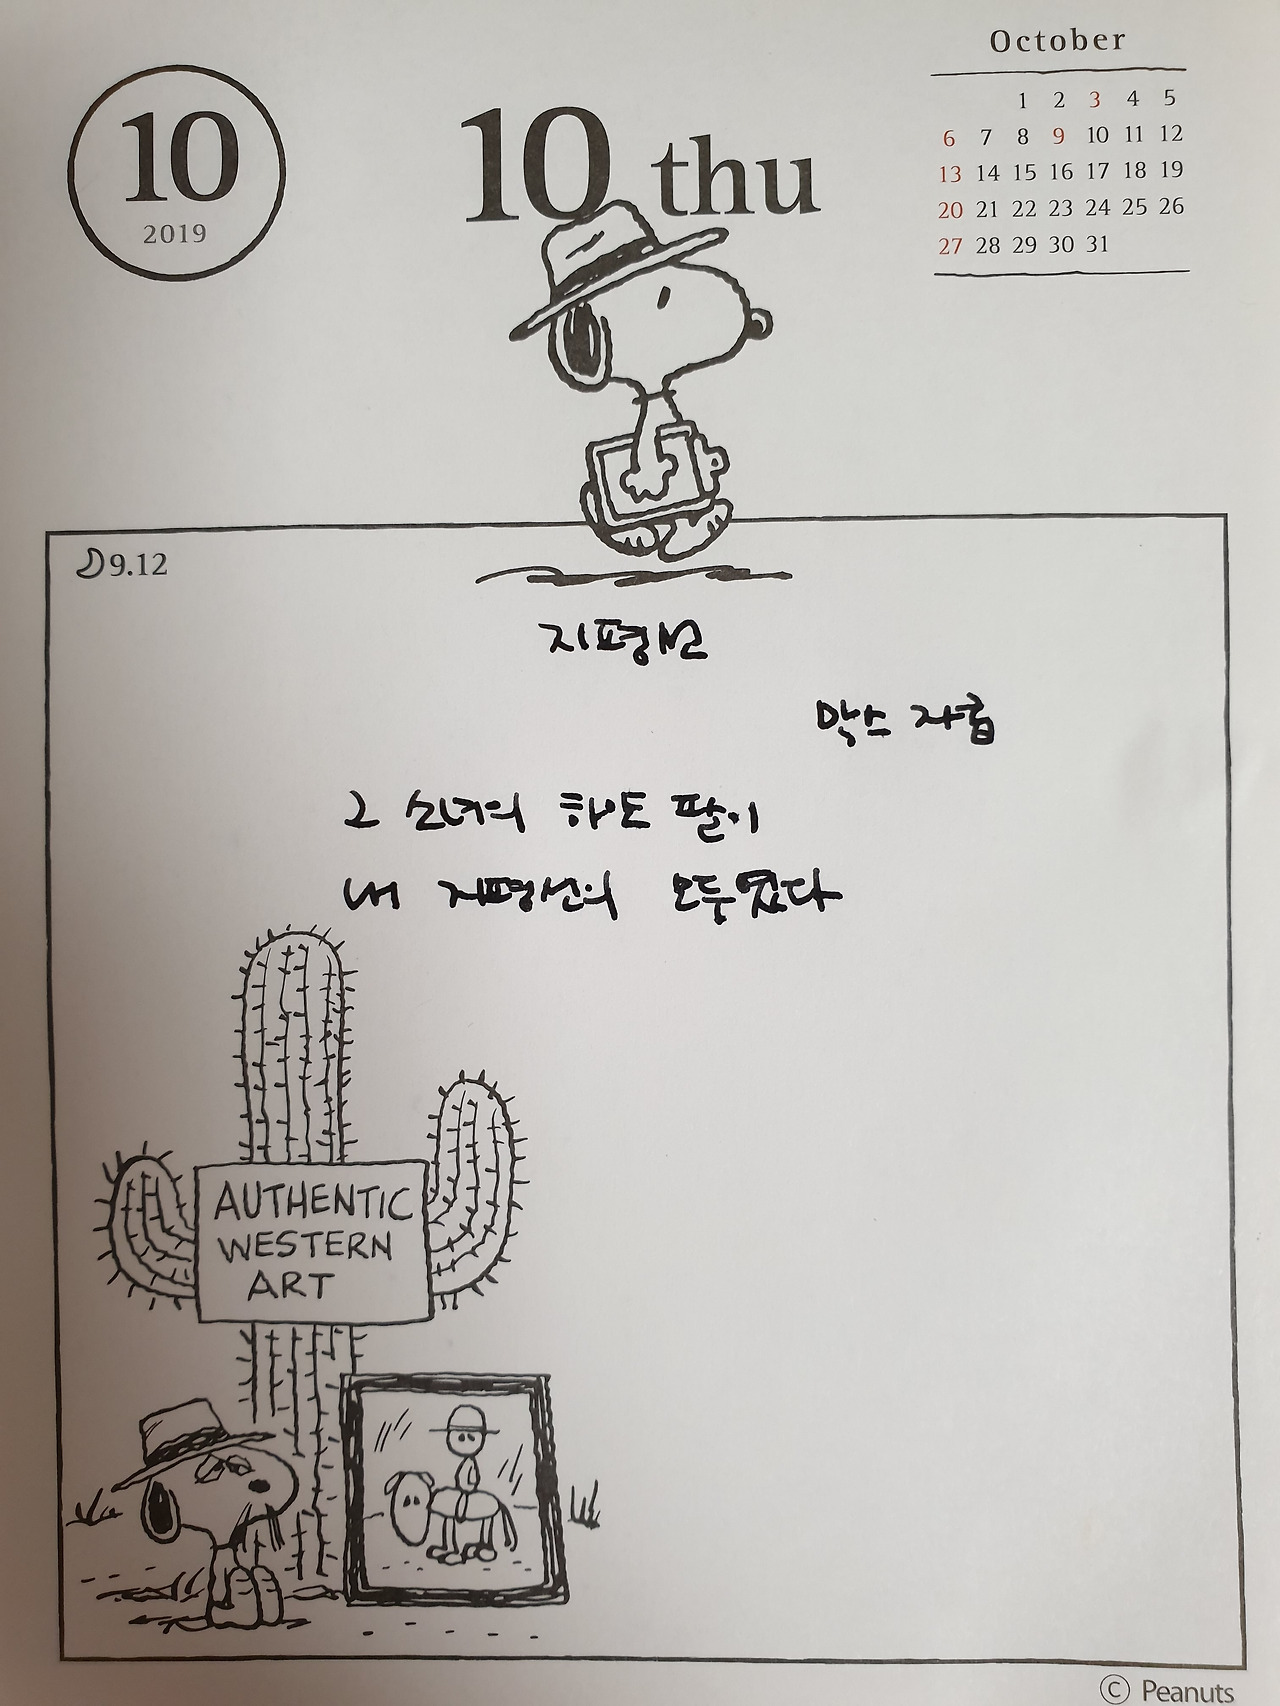 10
2019
10 thu
October
1 2 3 4 5
6 7 8 9 10 11 12
13 14 15 16 17 18 19
20 21 22 23 24 25 26
27 28 29 30 31
9.12
지평선
막스 자콥
그 소녀의 하얀 팔이
내 지평선의 모두였다
AUTHENTIC
WESTERN
ART
© Peanuts